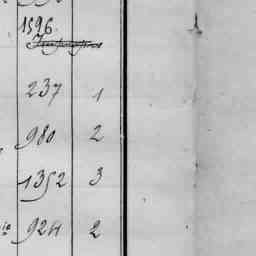 1596
237 1
980 2
1352 3
924 2